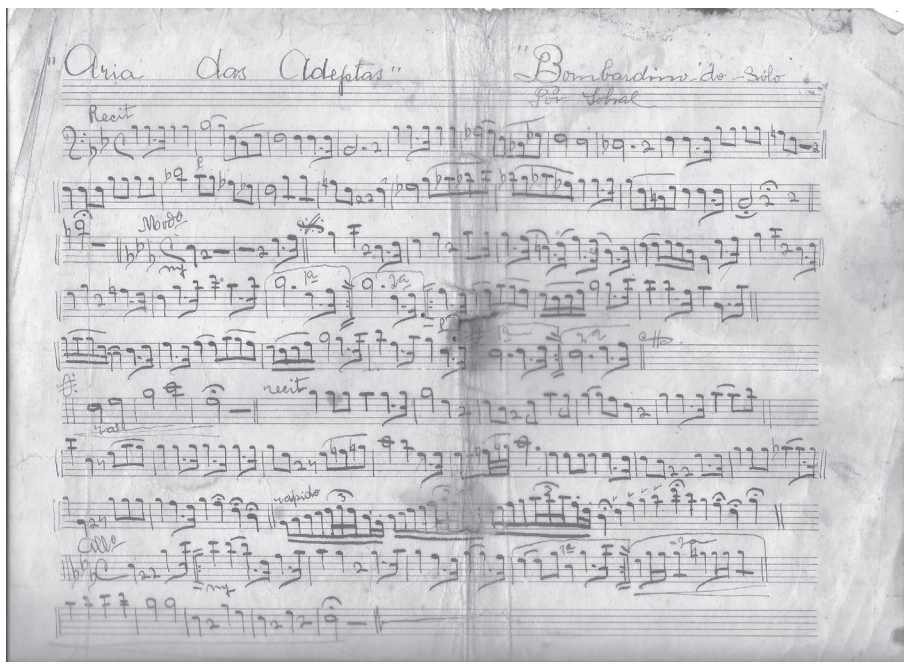 "Aria das Adeptas" "Bombardino do Sólo
Por Sobral
Recit
Modo
mf
1ª 2ª
1ª 2ª
recit
rall
rapido
3 3
Allo
1ª 2ª
mf